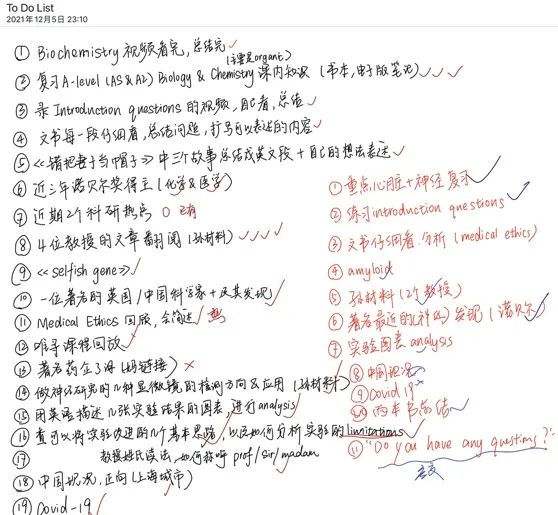 To Do List
2021年12月5日 23:10
① Biochemistry 视频看完,总结完
(主要是organic)
② 复习A-level (AS&A2) Biology & Chemistry 课内知识 (书本,电子版笔记)
③ 录 Introduction questions 的视频,自己看,总结
④ 文书每一段仔细看,总结问题,打马可以表述的内容
⑤ 《错把妻子当帽子》中三个故事总结成英文段+自己的想法表述
⑥ 近三年诺贝尔奖得主 (化学&医学)
⑦ 近期2个科研热点 0 已有
⑧ 4位教授的文章翻阅 (孙材料)
⑨ 《selfish gene》
⑩ 一位著名的英国/中国科学家+及其发现
⑪ Medical Ethics 回放,会简述 熟
⑫ 唯寻课程回放
⑬ 著名药企了解 (妈链接)
⑭ 做神经研究的几种显微镜的检测方向&应用 (孙材料)
⑮ 用英语描述几张实验结果的图表,进行analysis
⑯ 查可以将实验改进的几个基本思路,以及如何分析实验的limitations
⑰ 教授姓氏读法,如何称呼 prof/sir/madam
⑱ 中国状况,正向 (上海城市)
⑲ Covid-19
① 重点心脏+神经复习
② 练习introduction questions
③ 文书仔细看,分析 (medical ethics)
④ amyloid
⑤ 孙材料 (2个教授)
⑥ 著名最近的科学发现 (诺贝尔)
⑦ 实验图表 analysis
⑧ 中国状况
⑨ Covid 19
⑩ 两本书总结
⑪ "Do you have any question?"